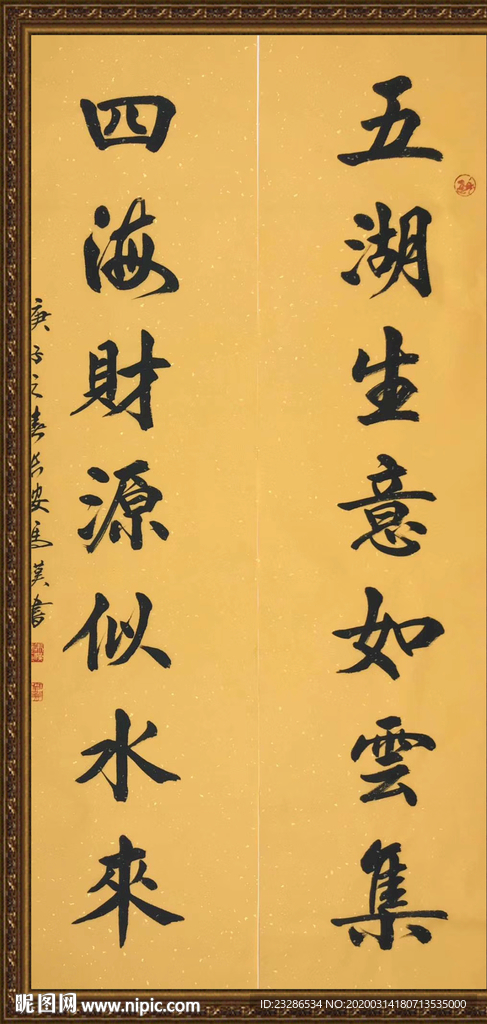 五湖生意如雲集
四海財源似水來
庚子之春长安馬英書
昵图网 www.nipic.com
ID:23286534 NO:20200314180713535000